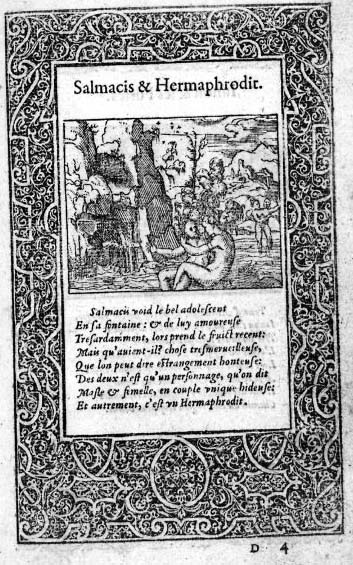 Salmacis & Hermaphrodit.
Salmacis void le bel adolescent
En sa fontaine: & de luy amoureuse
Tresardamment, lors prend le fruict recent:
Mais qu'auient-il? chose tresmerueilleuse,
Que lon peut dire estrangement honteuse:
Des deux n'est qu'un personnage, qu'on dit
Masle & femelle, en couple vnique hideuse:
Et autrement, c'est vn Hermaphrodit.
D 4